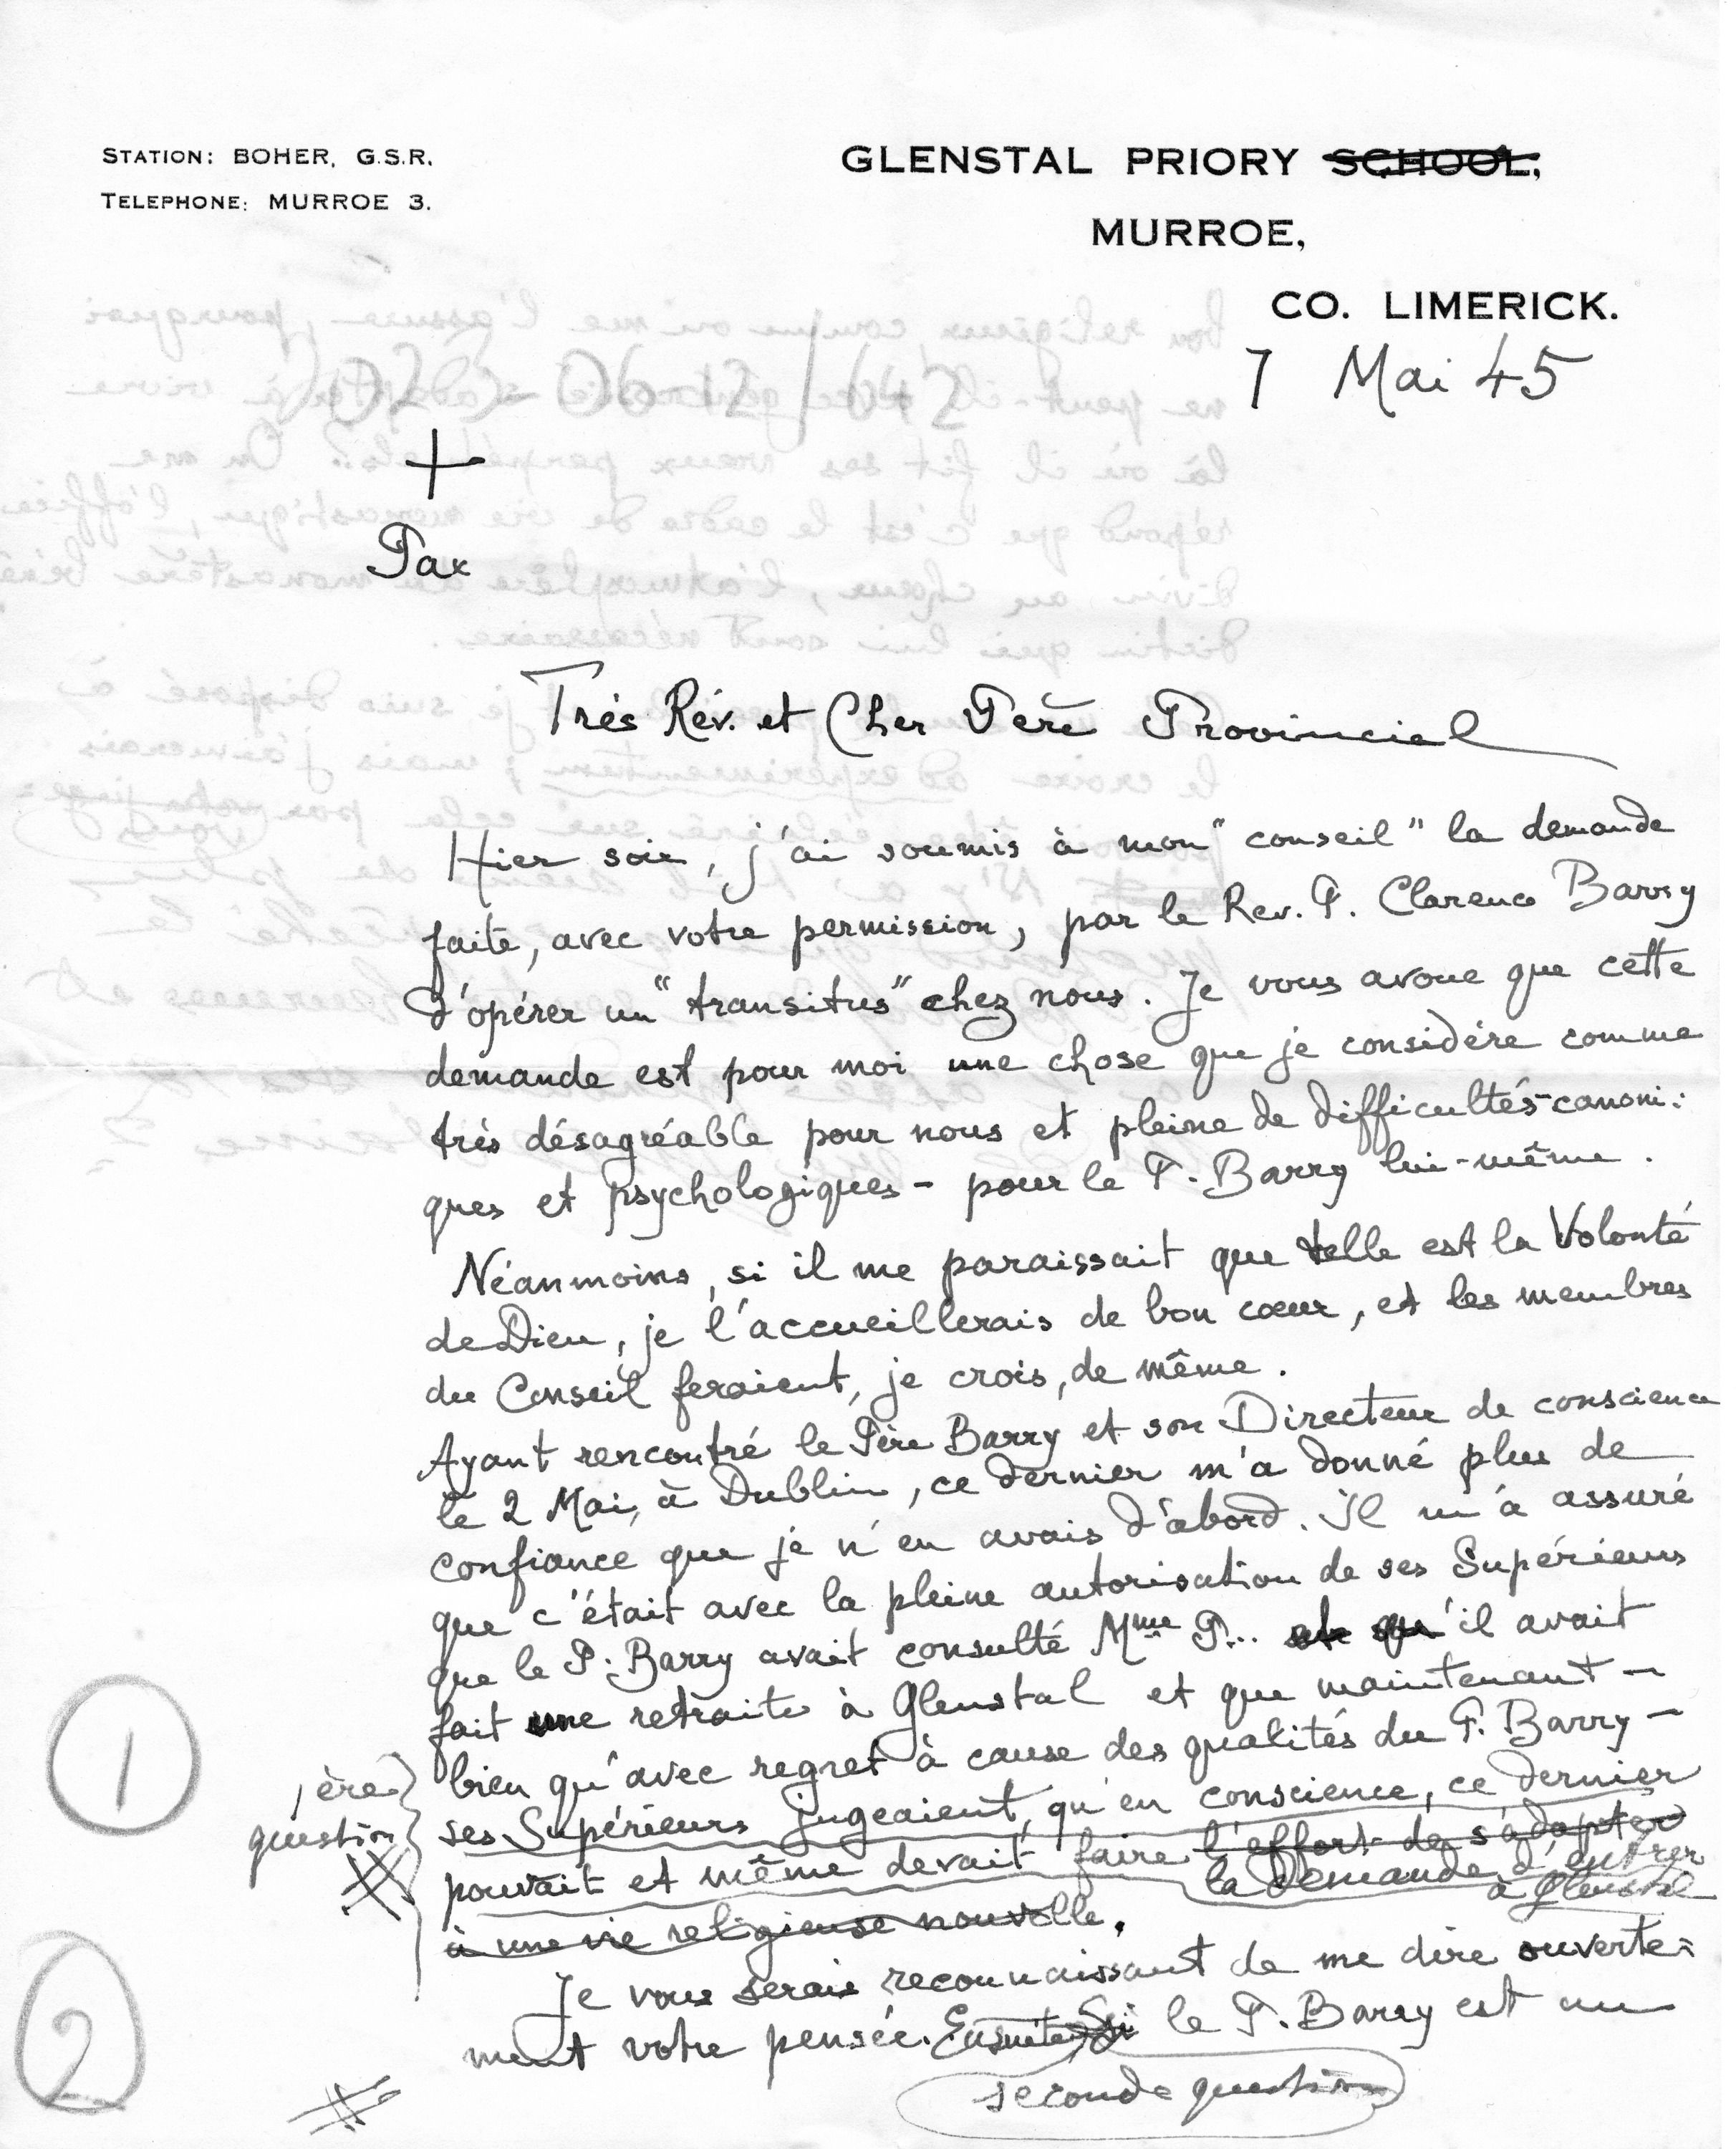 STATION: BOHER, G.S.R.
TELEPHONE: MURROE 3.
GLENSTAL PRIORY SCHOOL,
MURROE,
CO. LIMERICK.
7 Mai 45
+
Pax
Très Rév. et Cher Père Provincial
Hier soir, j'ai soumis à mon "conseil" la demande
faite, avec votre permission, par le Rev. P. Clarence Barry
d'opérer un "transitus" chez nous. Je vous avoue que cette
demande est pour moi une chose que je considère comme
très désagréable pour nous et pleine de difficultés - canoni:
ques et psychologiques - pour le P. Barry lui-même.
Néanmoins, si il me paraissait que telle est la Volonté
de Dieu, je l'accueillerais de bon cœur, et les membres
du Conseil feraient, je crois, de même.
Ayant rencontré le Père Barry et son Directeur de conscience
le 2 Mai, à Dublin, ce dernier m'a donné plus de
confiance que je n'en avais d'abord. Il m'a assuré
que c'était avec la pleine autorisation de ses Supérieurs
que le P. Barry avait consulté Mme P... et qu'il avait
fait une retraite à Glenstal et que maintenant -
bien qu'avec regret à cause des qualités du P. Barry -
ses Supérieurs jugeaient, qu'en conscience, ce dernier
pouvait et même devait faire l'effort de s'adapter
la demande d'entrer
à Glenstal
à une vie religieuse nouvelle.
1
1ère
question
Je vous serais reconnaissant de me dire ouverte:
ment votre pensée. Ensuite, Si le P. Barry est un
seconde question
2